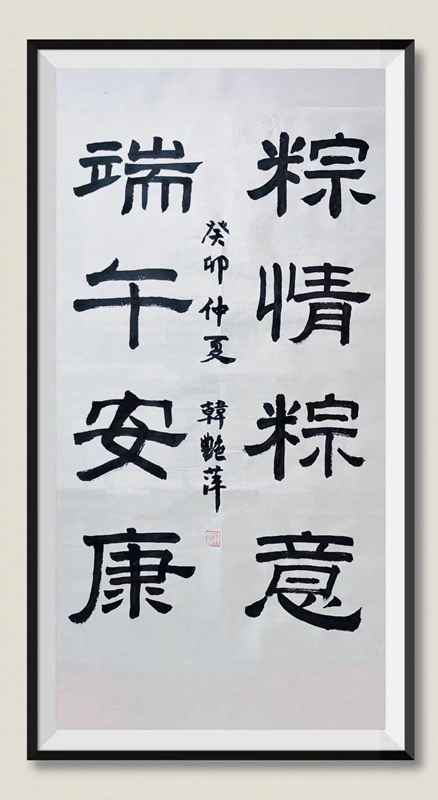 粽情粽意
端午安康
癸卯仲夏 韓艷萍